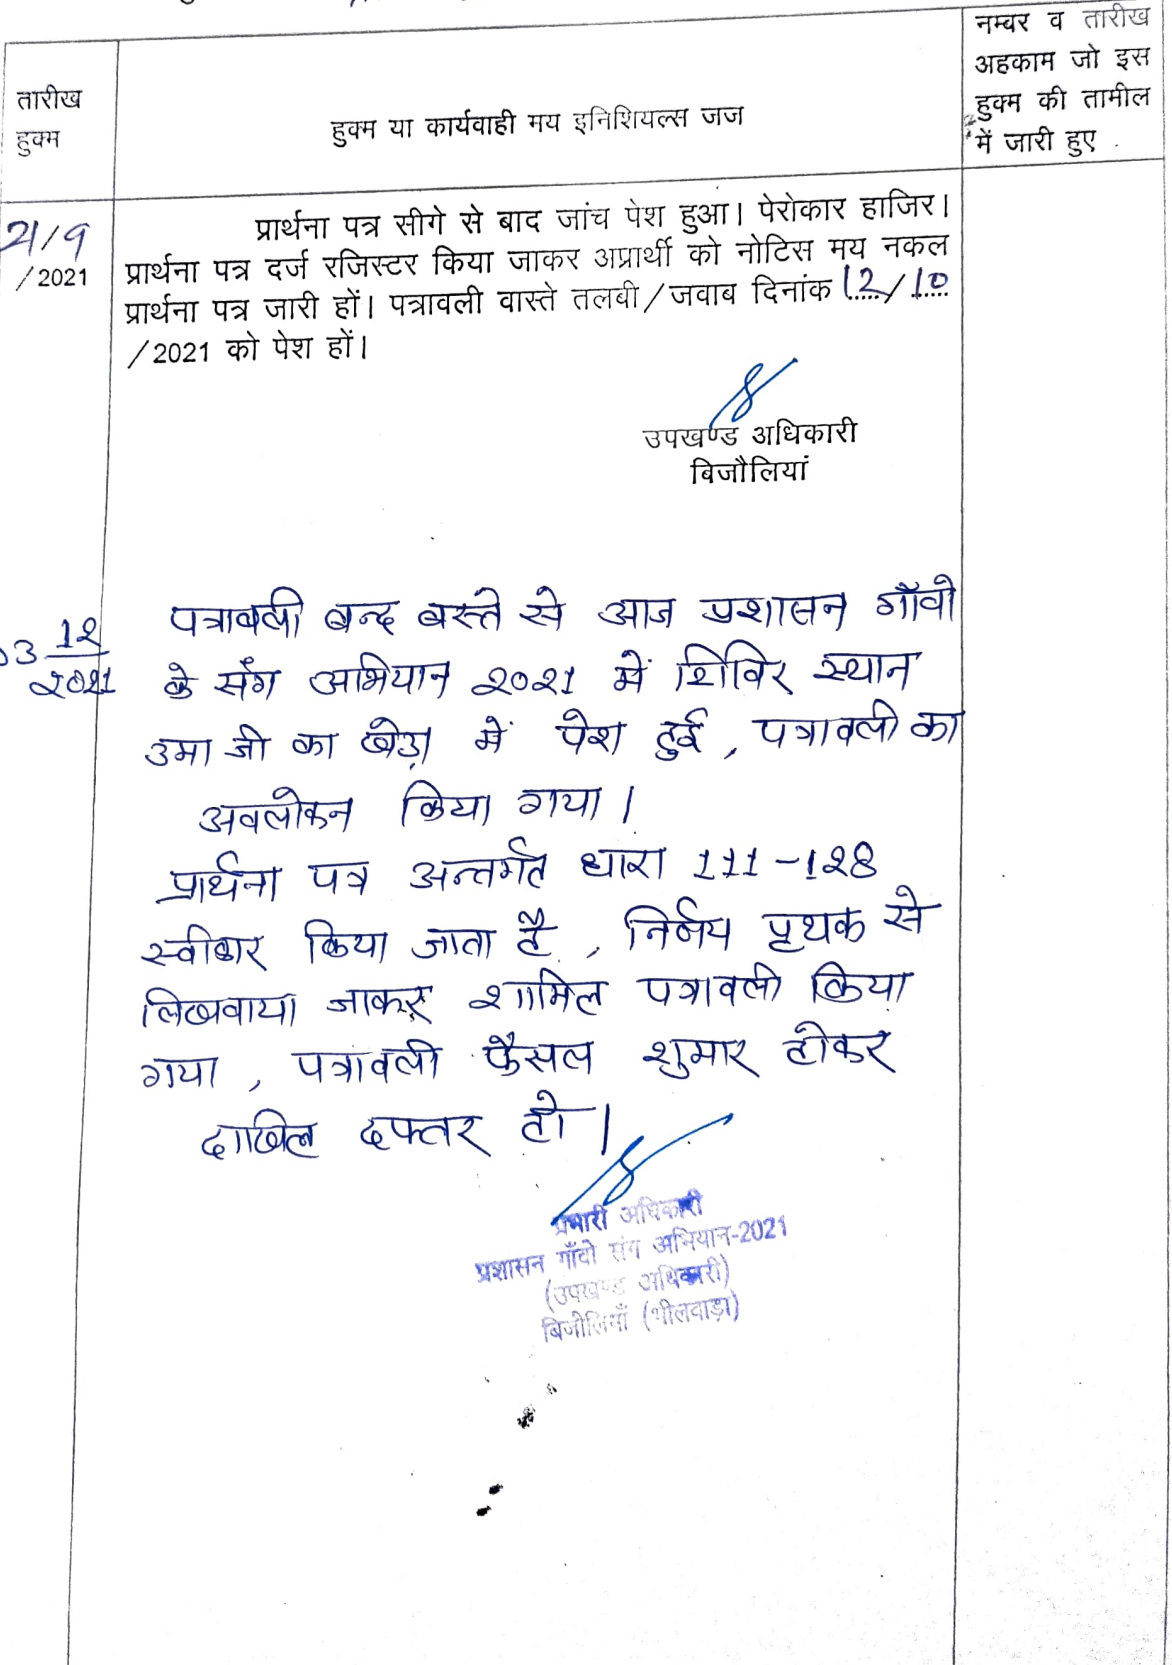 तारीख
हुक्म
हुक्म या कार्यवाही मय इनिशियल्स जज
नम्बर व तारीख
अहकाम जो इस
हुक्म की तामील
में जारी हुए
21/9
/2021
प्रार्थना पत्र सीगे से बाद जांच पेश हुआ। पेरोकार हाजिर।
प्रार्थना पत्र दर्ज रजिस्टर किया जाकर अप्रार्थी को नोटिस मय नकल
प्रार्थना पत्र जारी हों। पत्रावली वास्ते तलबी/जवाब दिनांक 12/10
/2021 को पेश हों।
उपखण्ड अधिकारी
बिजौलियां
03 12
2021
पत्रावली बन्द बस्ते से आज प्रशासन गाँवो
के सँग अभियान 2021 में शिविर स्थान
उमा जी का खेड़ा में पेश हुई, पत्रावली का
अवलोकन किया गया।
प्रार्थना पत्र अन्तर्गत धारा 111-128
स्वीकार किया जाता है, निर्णय पृथक से
लिखवाया जाकर शामिल पत्रावली किया
गया, पत्रावली फैसल शुमार होकर
दाखिल दफ्तर हो।
प्रभारी अधिकारी
प्रशासन गाँवो संग अभियान-2021
(उपखण्ड अधिकारी)
बिजौलियाँ (भीलवाड़ा)